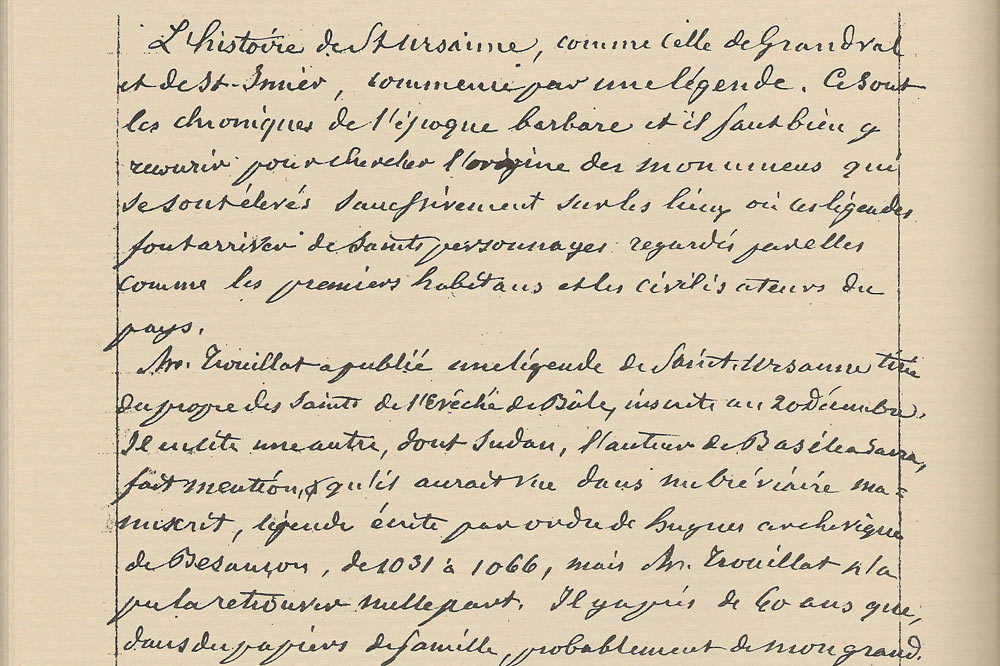 L'histoire de St Ursanne, comme celle de Grandval
et de St-Imier, commence par une légende. Ce sont
les chroniques de l'époque barbare et il faut bien y
recourir pour chercher l'origine des monumens qui
se sont élevés successivement sur les lieux où ces légendes
font arriver de saints personnages regardés par elles
comme les premiers habitans et les civilisateurs du
pays.
Mr. Trouillat a publié une légende de Sanct. Ursanne tirée
du propre des Saints de l'Evêché de Bâle, inscrite au 20 Décembre.
Il en cite une autre, dont Sudan, l'auteur de Basilea Sacra,
fait mention, & qu'il aurait vue dans un bréviaire ma=
nuscrit, légende écrite par ordre de hugues archevêque
de Besançon, de 1031 à 1066, mais Mr. Trouillat n'a
pu la retrouver nulle part. Il y a près de 60 ans que,
dans des papiers de famille, probablement de mon grand.